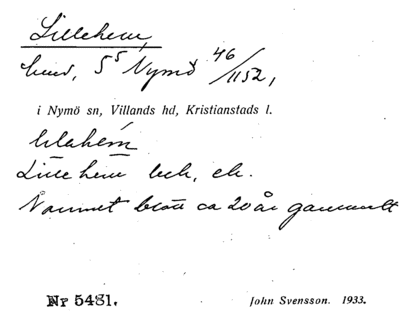 Lillehem,
hmd, 5⁵ Nymö 46/1152,
i Nymö sn, Villands hd, Kristianstads l.
lilahem
Lille hem beb, ek.
Namnet blott ca 20 år gammalt
Nr 5431.
John Svensson. 1933.